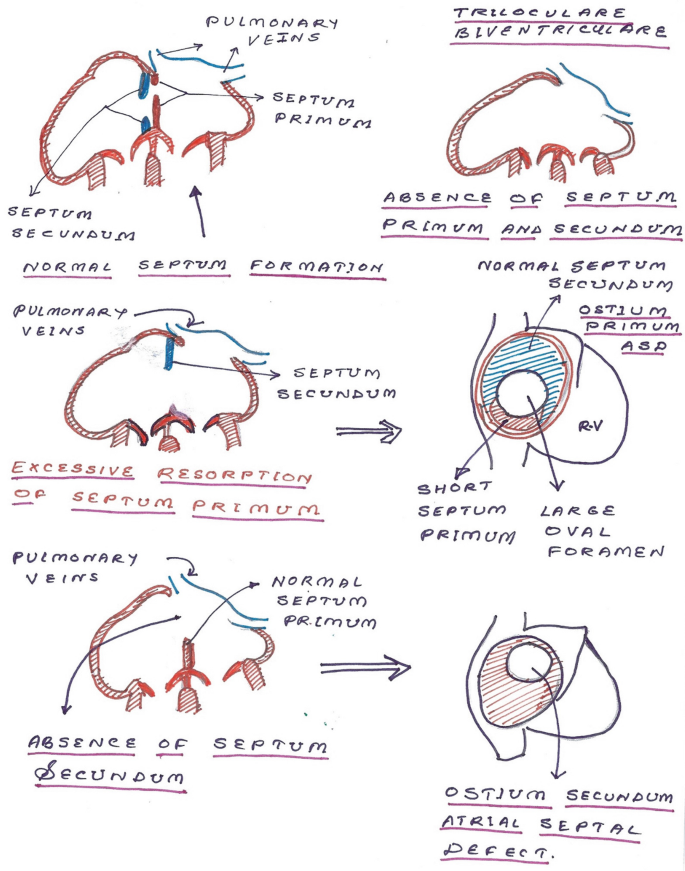 PULMONARY
VEINS
SEPTUM
PRIMUM
SEPTUM
SECUNDUM
NORMAL SEPTUM FORMATION
TRILOCULARE
BIVENTRICULARE
ABSENCE OF SEPTUM
PRIMUM AND SECUNDUM
PULMONARY
VEINS
SEPTUM
SECUNDUM
EXCESSIVE RESORPTION
OF SEPTUM PRIMUM
NORMAL SEPTUM
SECUNDUM
OSTIUM
PRIMUM
ASD
R.V
SHORT
SEPTUM
PRIMUM
LARGE
OVAL
FORAMEN
PULMONARY
VEINS
NORMAL
SEPTUM
PRIMUM
ABSENCE OF SEPTUM
SECUNDUM
OSTIUM SECUNDUM
ATRIAL SEPTAL
DEFECT.